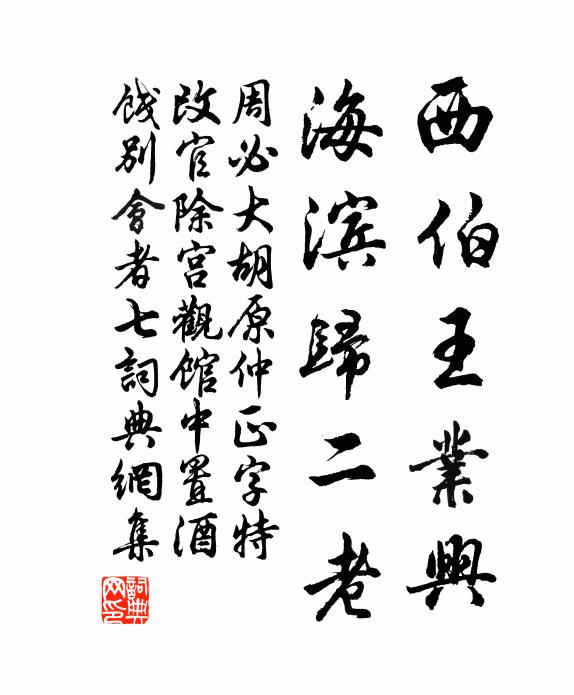 西伯王業興
海滨歸二老
周必大胡原仲正字特
改官除宮觀館中置酒
餞別會者七詞典網集
詞典網印